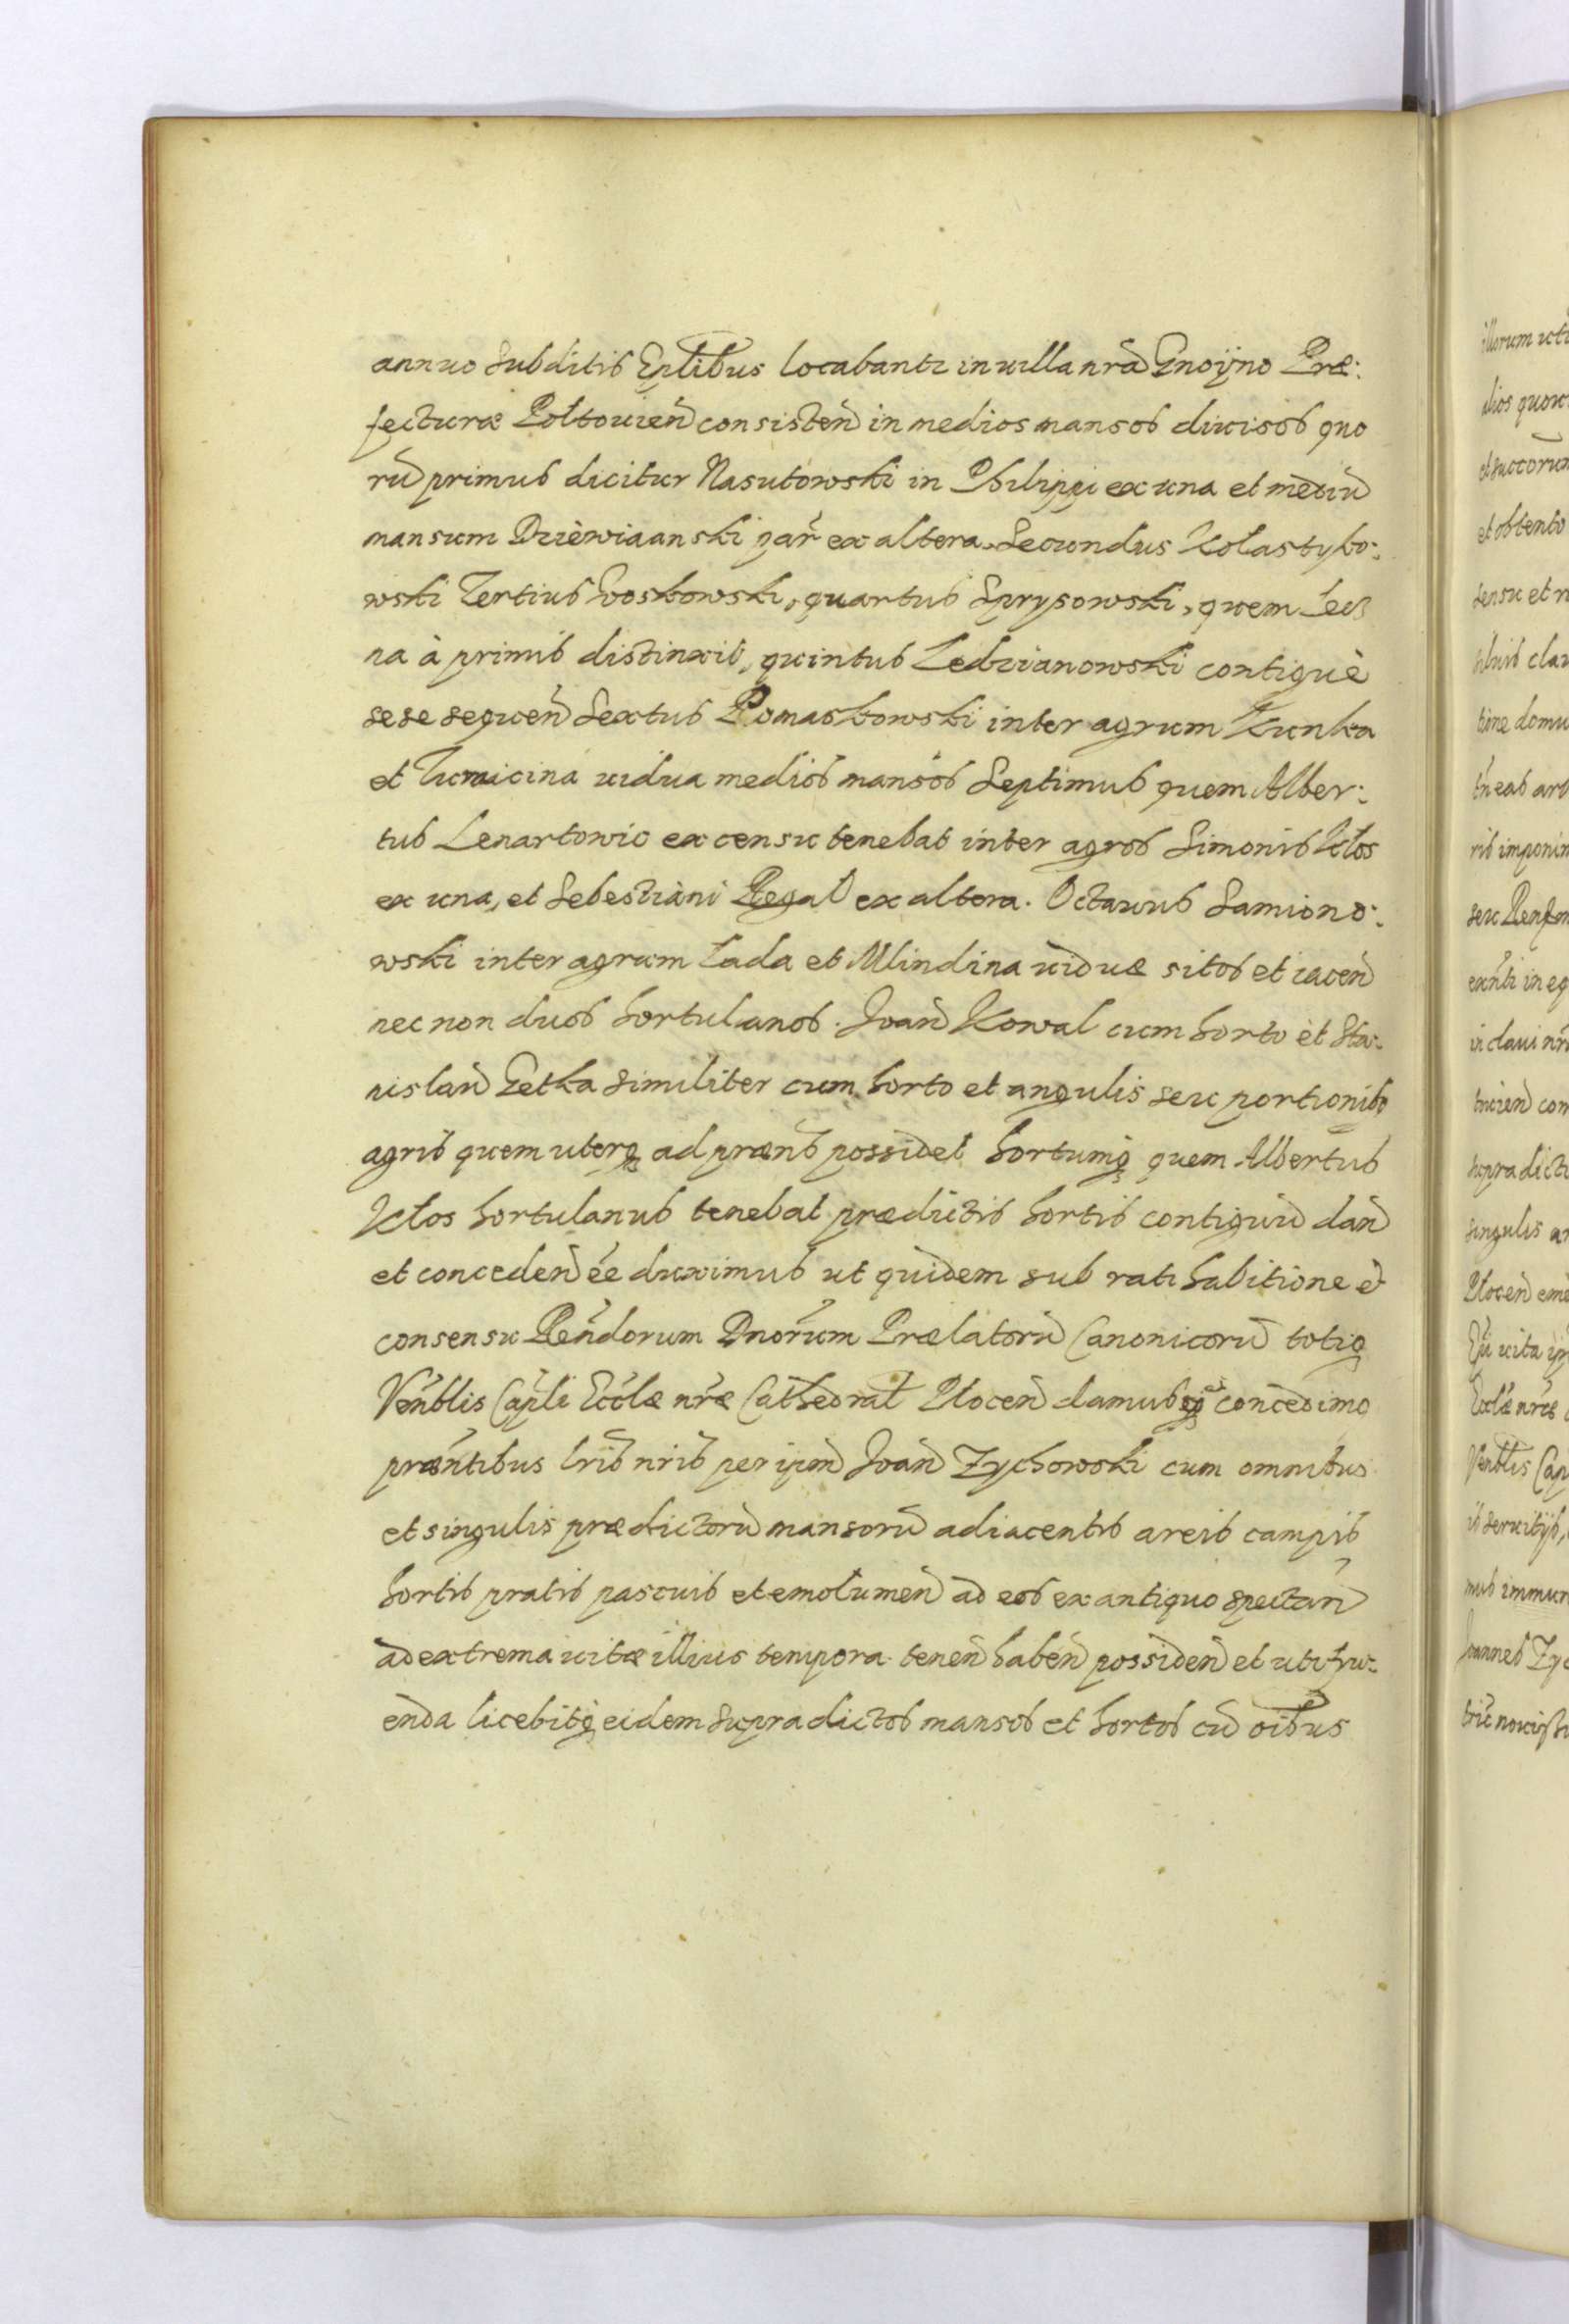 annuo subditis Eplibus locabantr in uilla nrã Gnoijno Præ:
fecturæ Poltouien consisten in medios mansos diuisos quo
rũ primus dicitur Nasutowski in Philippi ex una et mediũ
mansum Drzewiaanski par ex altera. Secundus Kolastyko:
wski Tertius Woskowski, quartus Sprysowski, quem
na à primis distinxit, quintus Ledzianowski contiguè
sese sequen Sextus Pomaskowski inter agrum Kunka
et uidua medios mansos Septimus quem Alber:
tus Lenartowic ex censu tenebat inter agros Simonis Klos
ex una, et Sebestiani Regal ex altera. Octauus Samiono:
wski inter agrum Lada et Mlindina uiduæ sitos et iacen
nec non duos hortulanos. Joan Kowal cum horto et Sta:
nislaũ Petka similiter cum horto et angulis seu portionibq
agris quem uterq ad præns possidet hortumq quem Albertus
Klos hortulanus tenebat prædictis hortis contiguũ dan
et conceden ée duximus ut quidem sub ratihabitione et
consensu Rendorum Dnorum Prælatorũ Canonicorũ totiq
Venblis Capli Ecclæ nræ Cathedral Plocen damus et concedimq
præntibus lris nris per ipm Joan Zychowski cum omnibus
et singulis prædictorũ mansorũ adiacentis areis campis
hortis pratis pascuis et emolumen ad eos ex antiquo spectan
ad extrema uitæ illius tempora tenen haben possiden et utifru:
enda licebitq eidem supradictos mansos et hortos cũ oibus
illorum
alios
et succorum
et obtento
sensu et
tione domu
ris imponin
in eq
supradict
singulis
Plocen
uita
Ecclæ nræ
Venblis Cap
seruitijs,
mus immun
Joannes Zyc